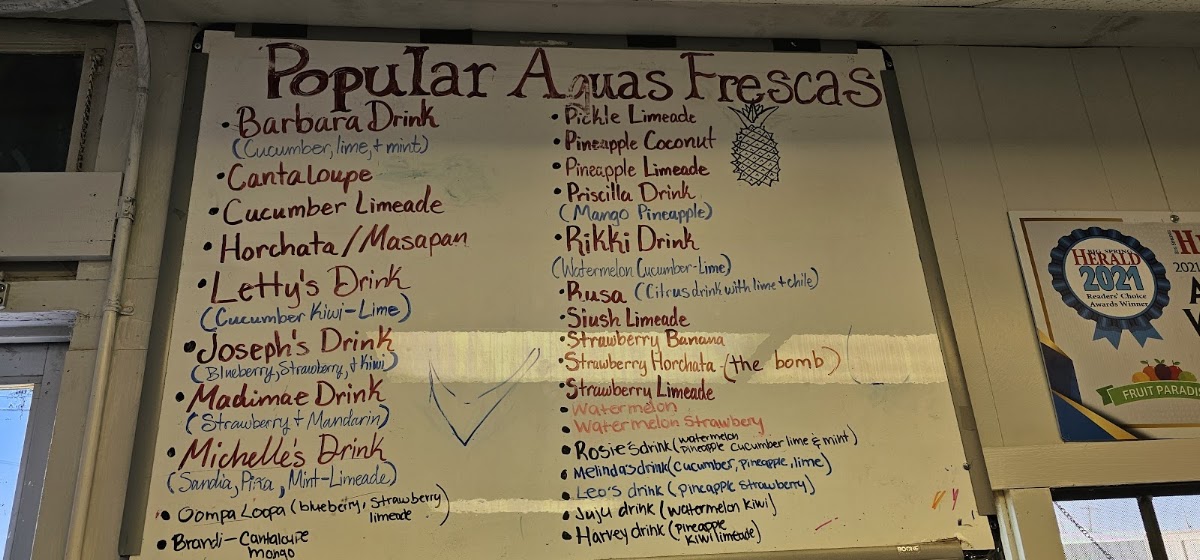 Popular Aguas Frescas
• Barbara Drink
(Cucumber, lime, + mint)
• Cantaloupe
• Cucumber Limeade
• Horchata/Masapan
• Letty's Drink
(Cucumber Kiwi-Lime)
• Joseph's Drink
(Blueberry, Strawberry, + Kiwi)
• Madimae Drink
(Strawberry + Mandarin)
• Michelle's Drink
(Sandia, Piña, Mint-Limeade)
• Oompa Loopa (blueberry, Strawberry
limeade
• Brandi - Cantaloupe
mongo
• Pickle Limeade
• Pineapple Coconut
• Pineapple Limeade
• Priscilla Drink
(Mango Pineapple)
• Rikki Drink
(Watermelon Cucumber-Lime)
• Rusa (Citrus drink with lime + chile)
• Slush Limeade
• Strawberry Banana
• Strawberry Horchata - (the bomb)
• Strawberry Limeade
• Watermelon
• Watermelon Strawbery
• Rosie's drink (watermelon
pineapple cucumber lime & mint)
• Melinda's drink (cucumber, pineapple, lime)
• Leo's drink (pineapple strawberry)
• Juju drink (watermelon kiwi)
• Harvey drink (pineapple
kiwi limeade)
BIG SPRING
HERALD
2021
Readers' Choice
Awards Winner
2021
FRUIT PARADIS